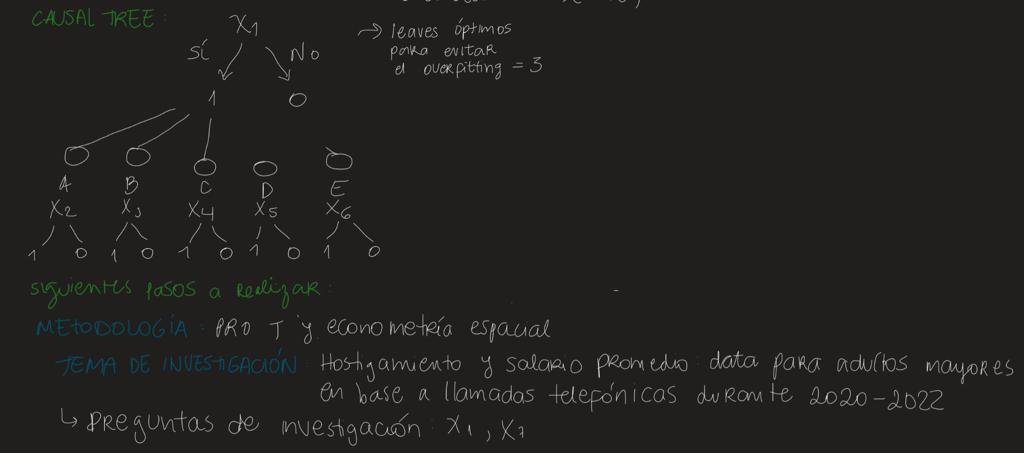 CAUSAL TREE:
X1
Sí No
1 0
→ leaves óptimos
para evitar
el overpitting = 3
A B C D E
X2 X3 X4 X5 X6
1 0 1 0 1 0 1 0 1 0
siguientes pasos a realizar:
METODOLOGÍA: PRO T y econometría espacial
TEMA DE INVESTIGACIÓN: Hostigamiento y salario promedio: data para adultos mayores
en base a llamadas telefónicas durante 2020-2022
↳ preguntas de investigación: X1, X7